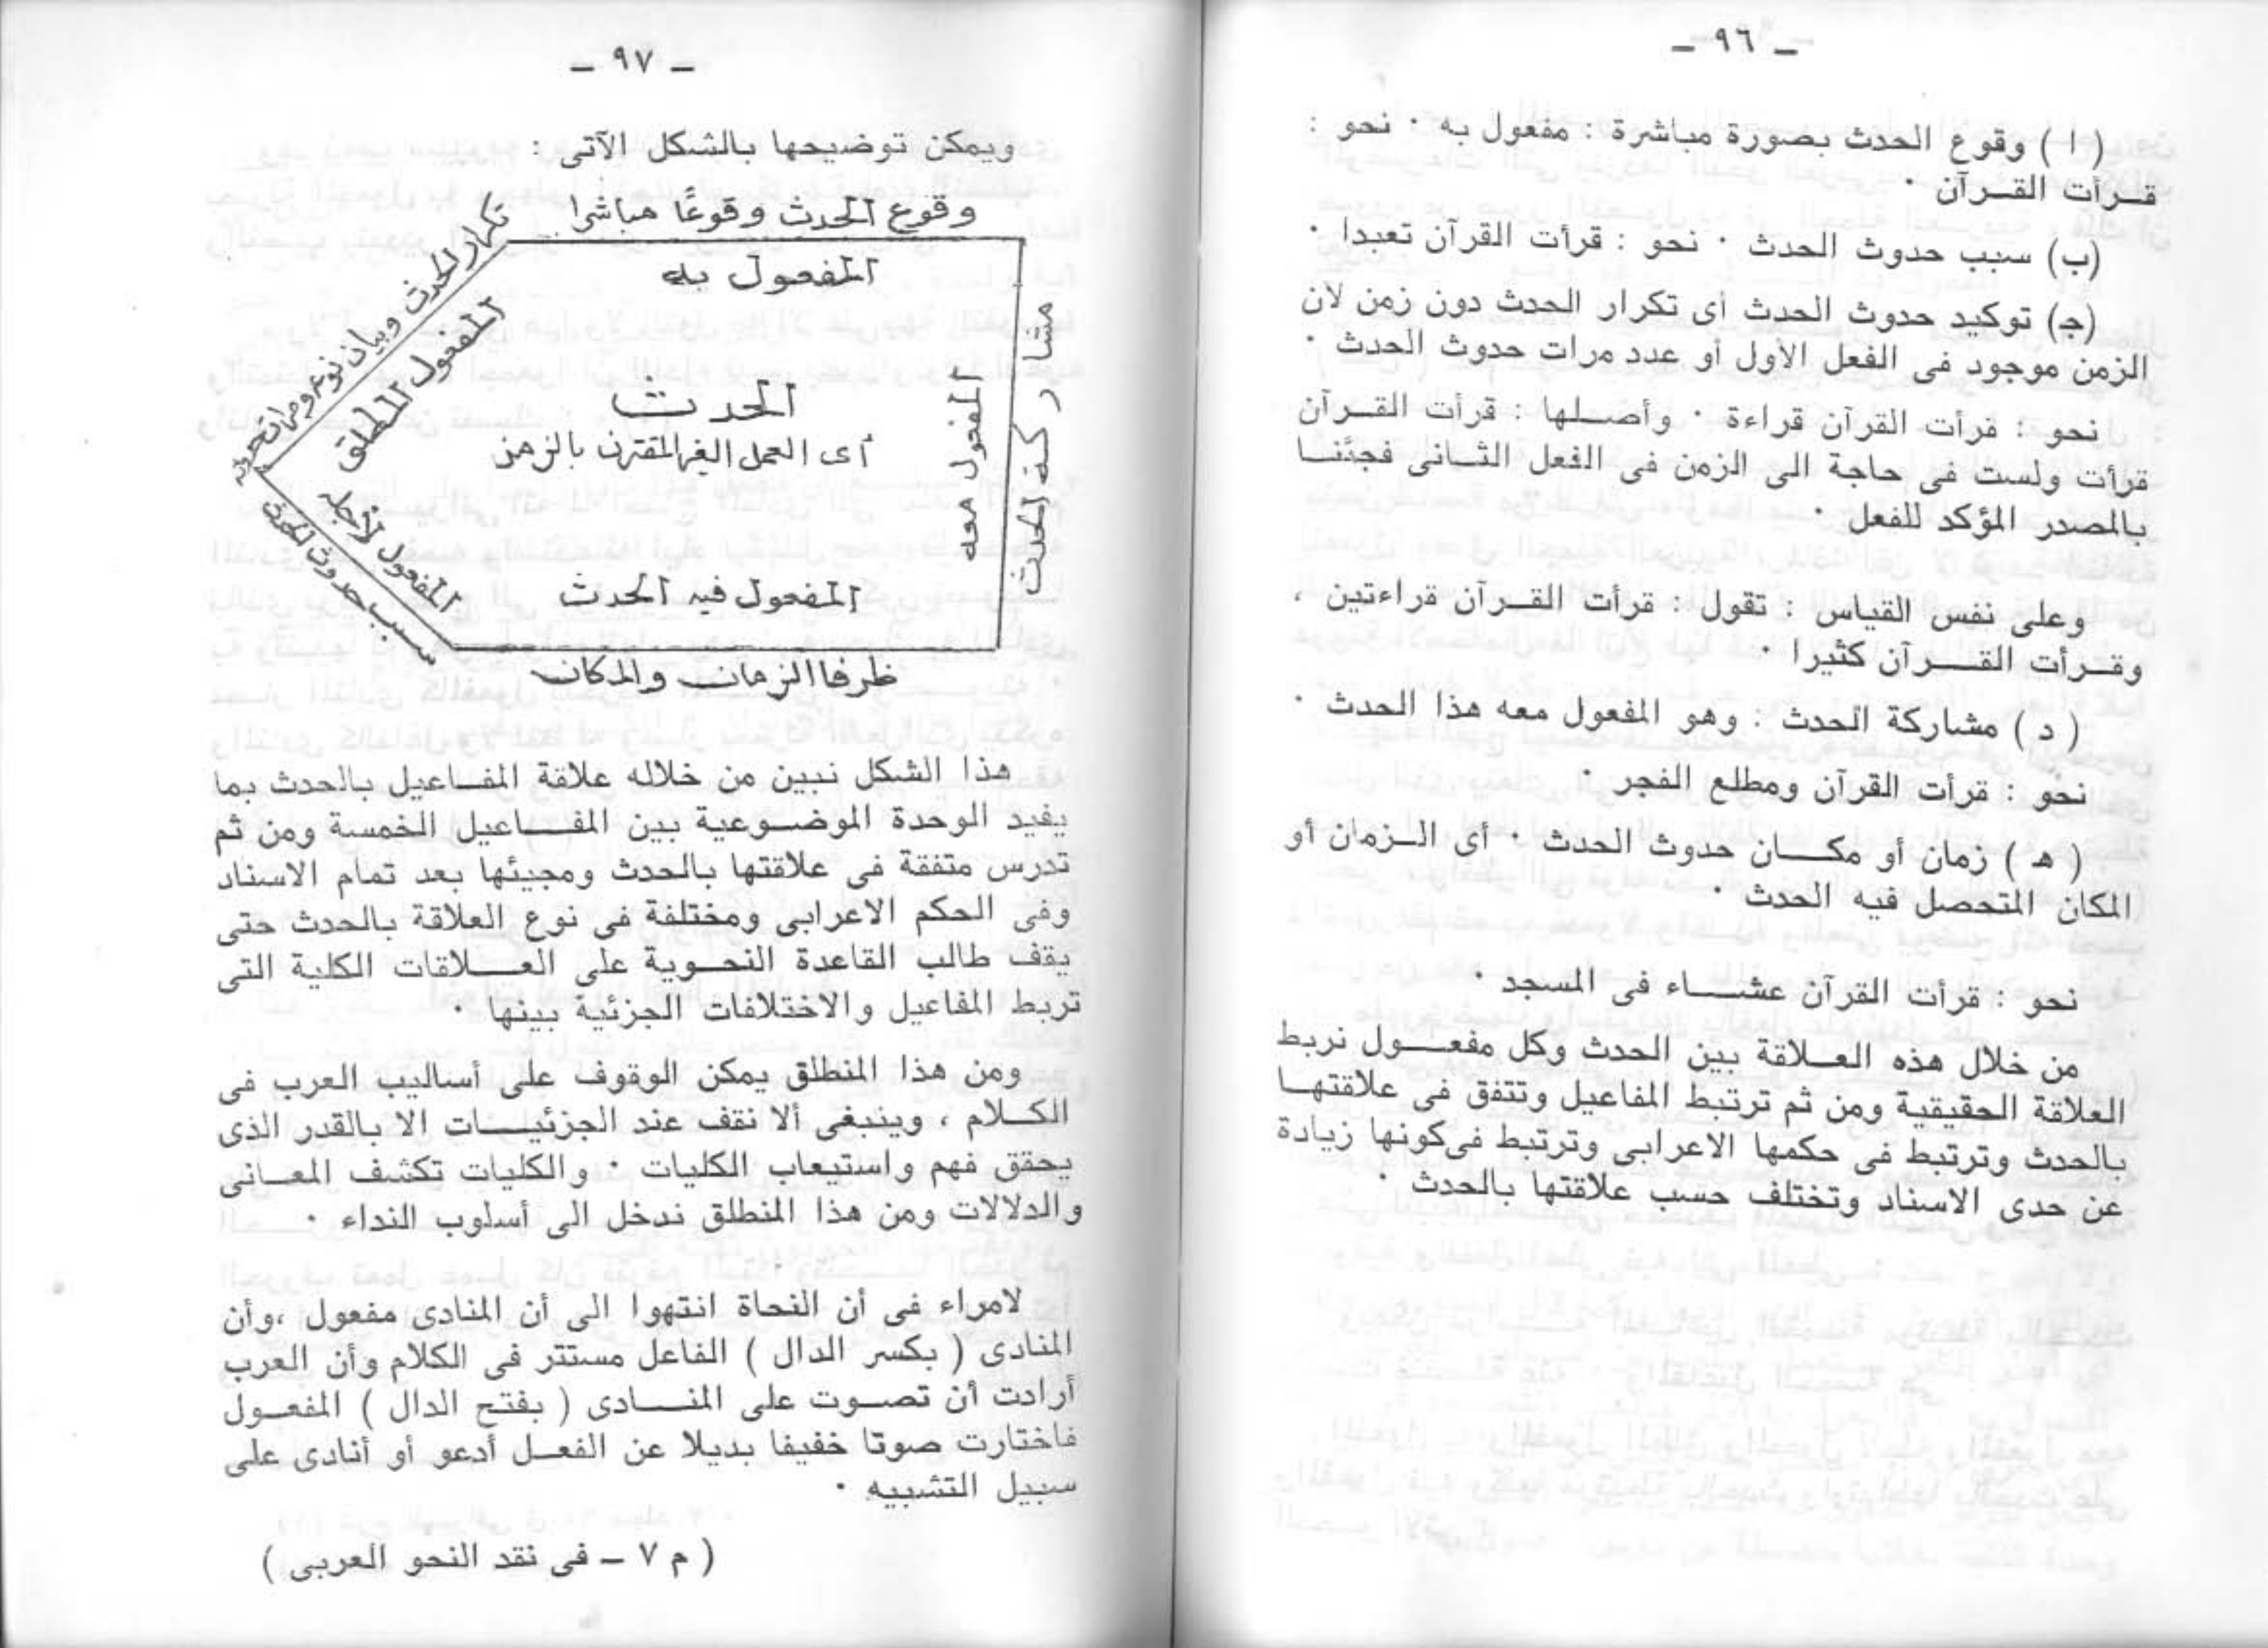 ـ ٩٦ ـ
( ا ) وقوع الحدث بصورة مباشرة : مفعول به · نحو :
قـرأت القـرآن ·
(ب) سبب حدوث الحدث · نحو : قرأت القرآن تعبدا ·
(ج) توكيد حدوث الحدث أى تكرار الحدث دون زمن لان
الزمن موجود فى الفعل الأول أو عدد مرات حدوث الحدث ·
نحو : قرأت القرآن قراءة · وأصـلها : قرأت القـرآن
قرأت ولست فى حاجة الى الزمن فى الفعل الثـانى فجئنـا
بالمصدر المؤكد للفعل ·
وعلى نفس القياس : تقول : قرأت القـرآن قراءتين ،
وقـرأت القـــرآن كثيرا ·
( د ) مشاركة الحدث : وهو المفعول معه هذا الحدث ·
نحو : قرأت القرآن ومطلع الفجر ·
( هـ ) زمان أو مكـــان حدوث الحدث · أى الـزمان أو
المكان المتحصل فيه الحدث ·
نحو : قرأت القرآن عشـــاء فى المسجد ·
من خلال هذه العـلاقة بين الحدث وكل مفعـــول نربط
العلاقة الحقيقية ومن ثم ترتبط المفاعيل وتتفق فى علاقتهـا
بالحدث وترتبط فى حكمها الاعرابى وترتبط فى كونها زيادة
عن حدى الاسناد وتختلف حسب علاقتها بالحدث ·
ـ ٩٧ ـ
ويمكن توضيحها بالشكل الآتى :
وقوع الحدث وقوعًا مباشرا
المفعول به
تكرار الحدث وبيان نوعه ومرات حدوثه
المفعول المطلق
مشاركة الحدث
المفعول معه
الحدث
أى العمل الغير المقترن بالزمن
المفعول لأجله
سبب حدوث الحدث
المفعول فيه الحدث
ظرفا الزمان والمكان
هذا الشكل نبين من خلاله علاقة المفـاعيل بالحدث بما
يفيد الوحدة الموضـوعية بين المفـــاعيل الخمسة ومن ثم
تدرس متفقة فى علاقتها بالحدث ومجيئها بعد تمام الاسناد
وفى الحكم الاعرابى ومختلفة فى نوع العلاقة بالحدث حتى
يقف طالب القاعدة النحـوية على العـــلاقات الكلية التى
تربط المفاعيل والاختلافات الجزئية بينها ·
ومن هذا المنطلق يمكن الوقوف على أساليب العرب فى
الكـلام ، وينبغى ألا نقف عند الجزئيـــات الا بالقدر الذى
يحقق فهم واستيعاب الكليات · والكليات تكشف المعـانى
والدلالات ومن هذا المنطلق ندخل الى أسلوب النداء ·
لامراء فى أن النحاة انتهوا الى أن المنادى مفعول ،وأن
المنادى ( بكسر الدال ) الفاعل مستتر فى الكلام وأن العرب
أرادت أن تصـوت على المنـــادى ( بفتح الدال ) المفعـول
فاختارت صوتا خفيفا بديلا عن الفعـل أدعو أو أنادى على
سبيل التشبيه ·
( م ٧ ـ فى نقد النحو العربى )